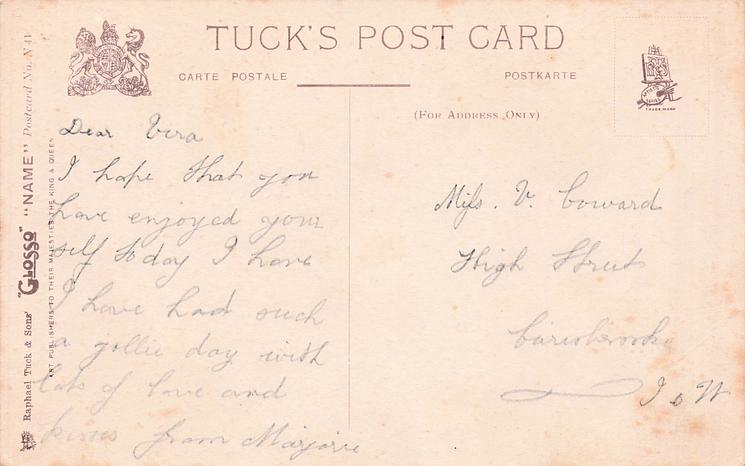 TUCK'S POST CARD
CARTE POSTALE
POSTKARTE
(FOR ADDRESS ONLY)
TRADE MARK
Raphael Tuck & Sons' "GLOSSO" "NAME" Postcard No. N 41
ART PUBLISHERS TO THEIR MAJESTIES THE KING & QUEEN
Dear Vera
I hope that you
have enjoyed your
self today I have
I have had such
a jollie day with
lots of love and
kisses from Marjorie
Miss. V. Coward
High Street
Carisbrooke
I o W